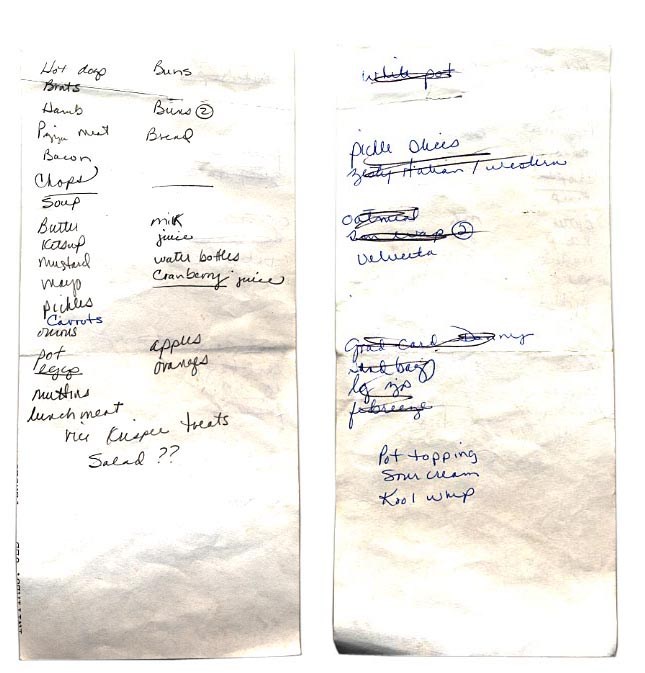 Hot dogs Buns
Brats
Hamb Buns ②
Pizza meat Bread
Bacon
Chops
Soup
Butter milk
Ketsup juice
mustard water bottles
mayo Cranberry juice
pickles
Carrots
onions
pot apples
eggs oranges
muffins
lunch meat
rice Krispee treats
Salad ??
white pot
pickle slices
zesty Italian / western
oatmeal
②
Velveeta
Grad Card Danny
bags
lg zips
febreeze
Pot topping
Sour cream
Kool whip